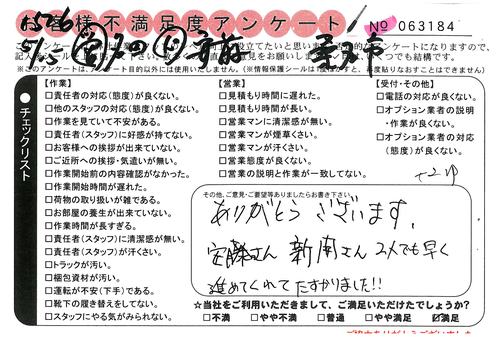 お客様不満足度アンケート
No 063184
【作業】
□責任者の対応(態度)が良くない。
□他のスタッフの対応(態度)が良くない。
□作業を見ていて不安がある。
□責任者(スタッフ)に好感が持てない。
□お客様への挨拶が出来ていない。
□ご近所への挨拶・気遣いが無い。
□作業開始前の内容確認がなかった。
□作業開始時間が遅れた。
□荷物の取り扱いが雑である。
□お部屋の養生が出来ていない。
□作業時間が長すぎる。
□責任者(スタッフ)に清潔感が無い。
□責任者(スタッフ)が汗くさい。
□トラックが汚い。
□梱包資材が汚い。
□運転が不安(下手)である。
□靴下の履き替えをしてない。
□スタッフにやる気がみられない。
【営業】
□見積もり時間に遅れた。
□見積もり時間が長い。
□営業マンに清潔感が無い。
□営業マンが煙草くさい。
□営業マンが汗くさい。
□営業態度が良くない。
□営業の説明と作業が一致してない。
【受付・その他】
□電話の対応が良くない。
□オプション業者の説明
・作業が良くない。
□オプション業者の対応
(態度)が良くない。
●チェックリスト
その他、ご意見・ご要望等ありましたらお書き下さい。
ありがとうございます。
安藤さん 新開さん 2人でも早く
進めてくれて たすかりました!!
☆当社をご利用いただきまして、ご満足いただけたでしょうか?
□不満 □やや不満 □普通 □やや満足 ☑満足